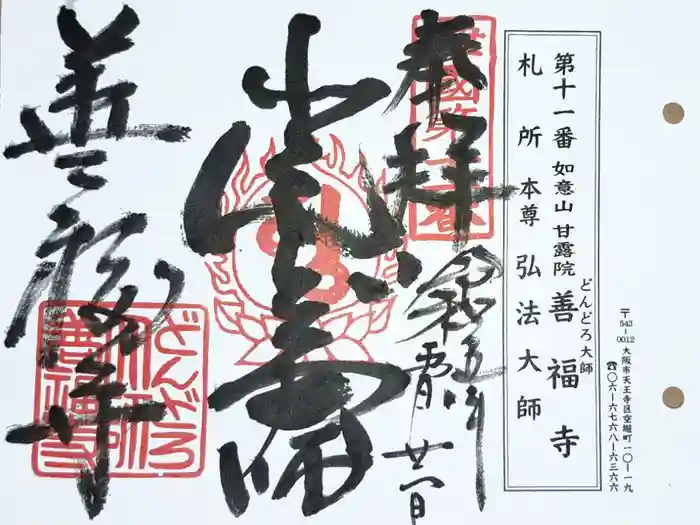 奉拝
令和五年
廿一日
弘法大師
善福寺
どんどろ
大師
善福寺
第十一番 如意山 甘露院 善福寺
どんどろ大師
札所本尊 弘法大師
〒543-0012 大阪市天王寺区空堀町一〇-一九
☎〇六-六七六八-六三六六